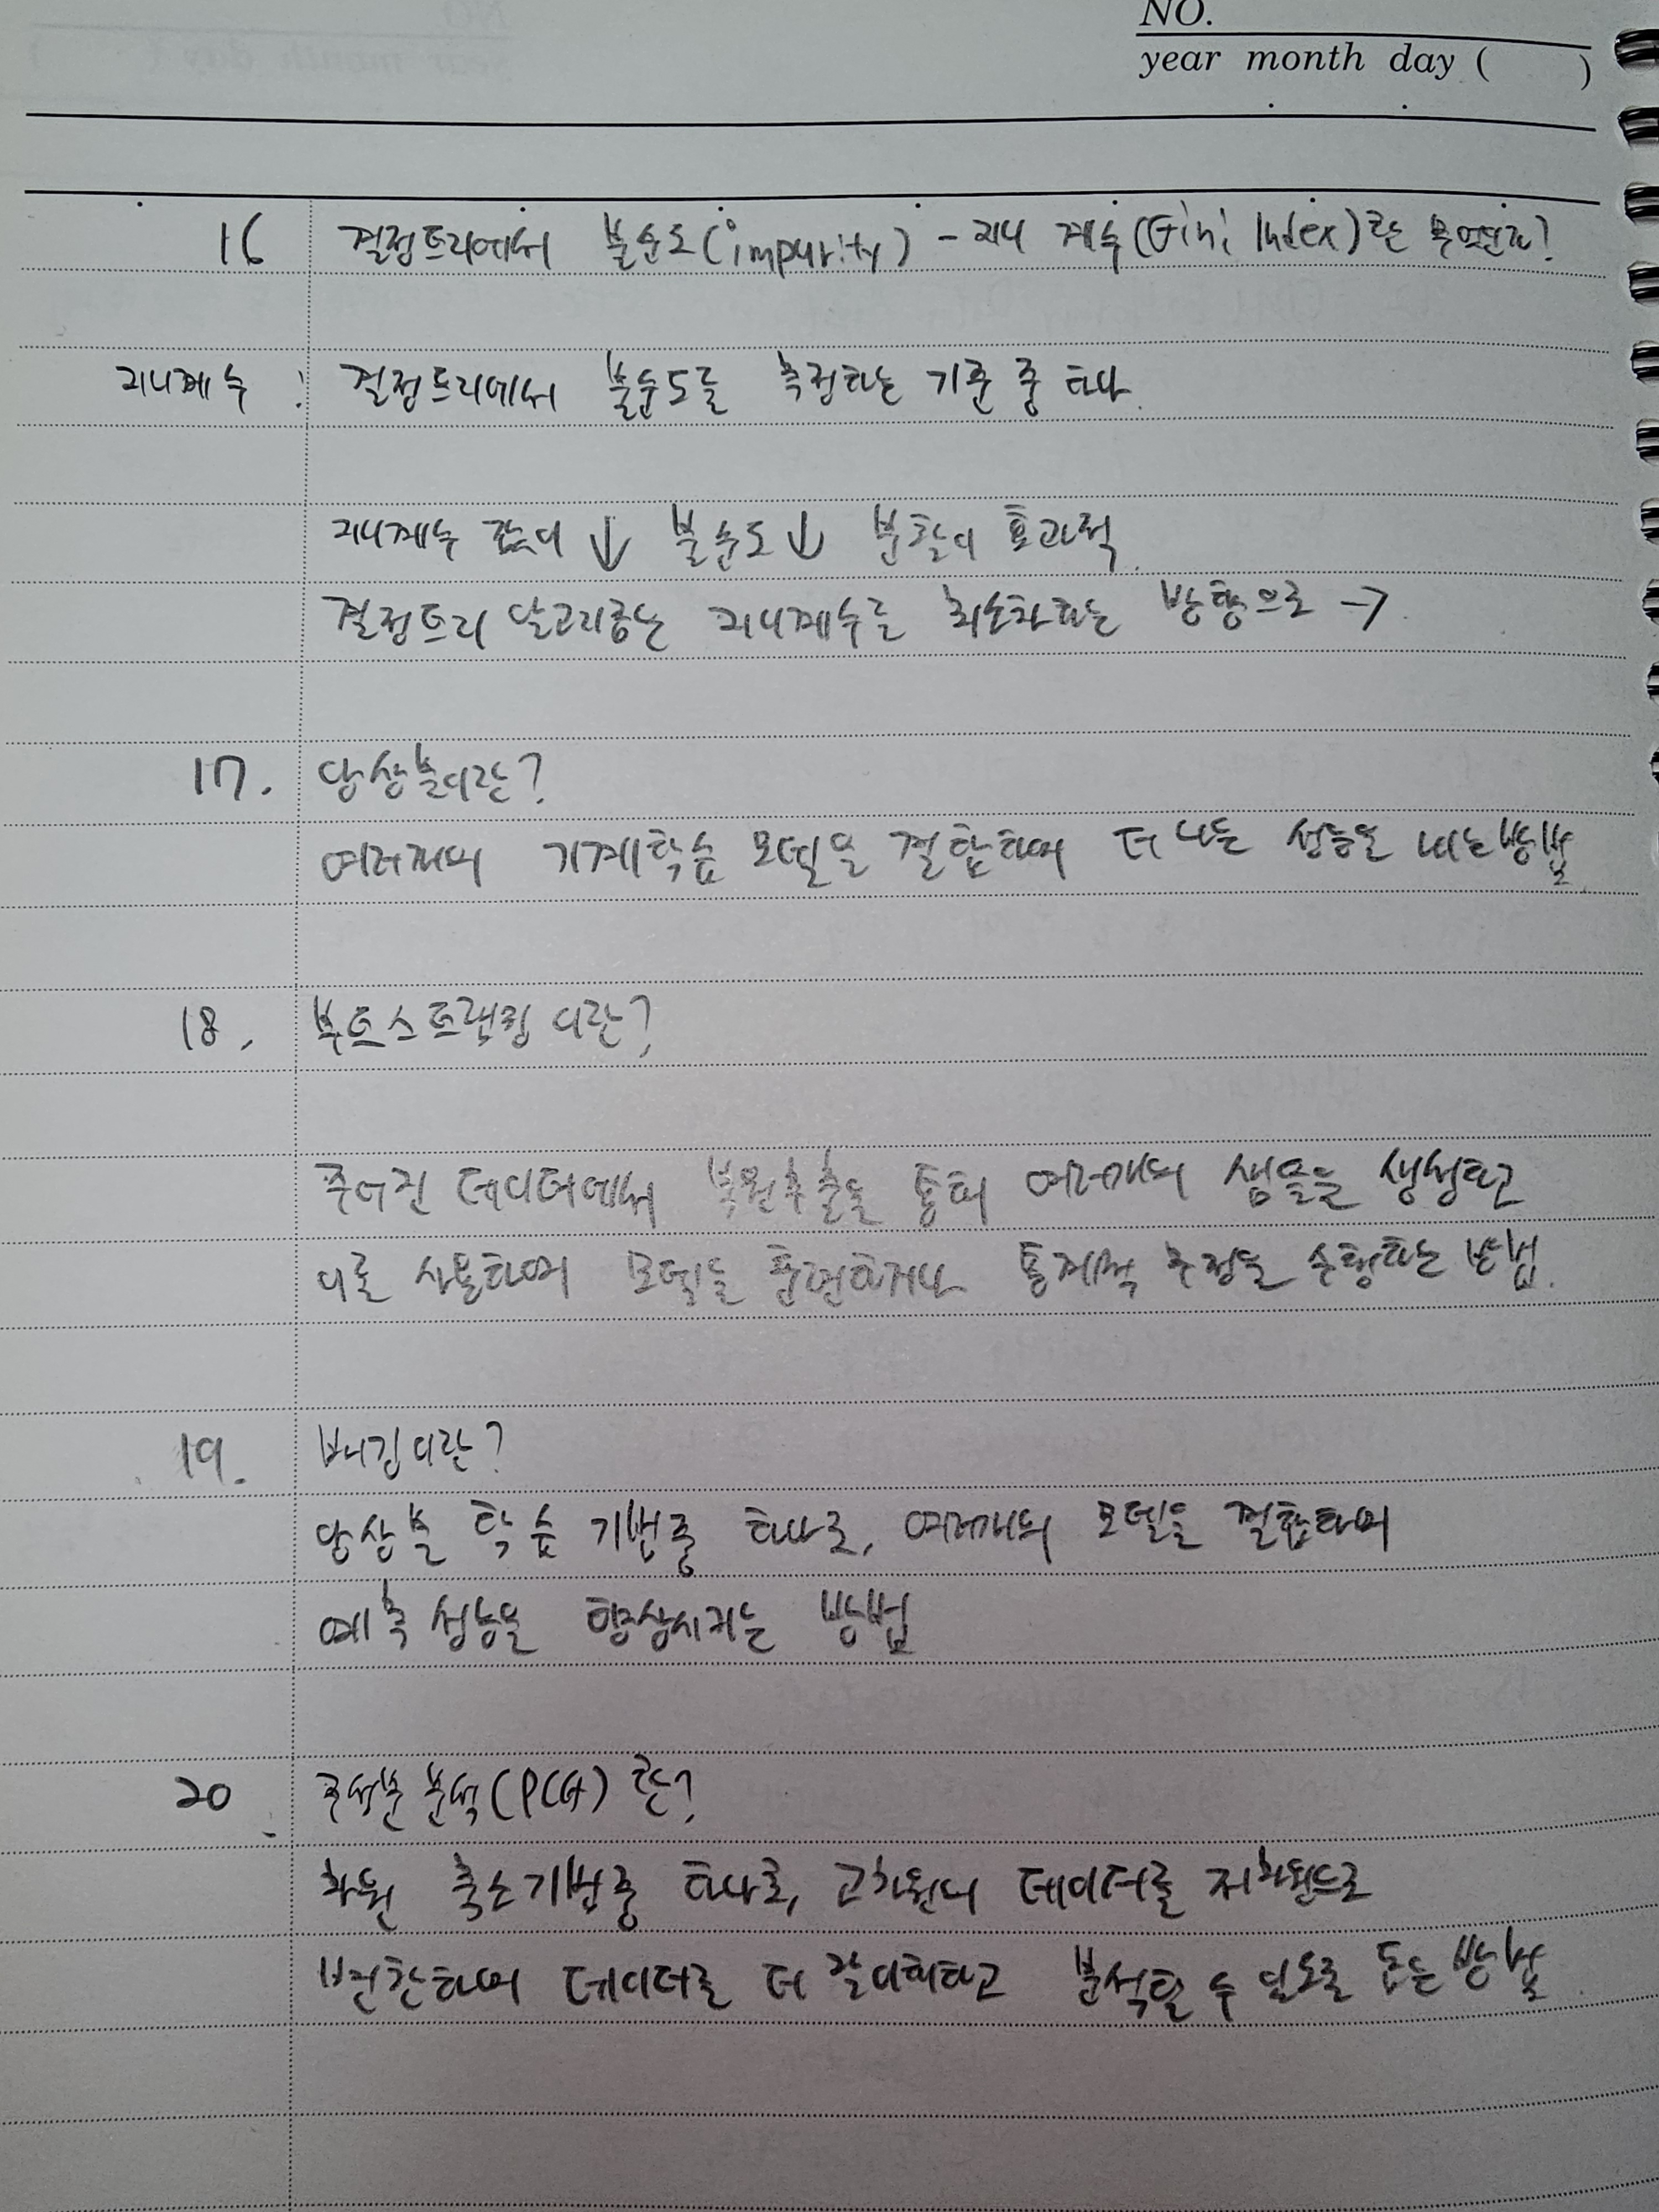 NO.
year month day ( )
16 결정트리에서 불순도(impurity) - 지니 계수(Gini Index)란 무엇인가?
지니계수 : 결정트리에서 불순도를 측정하는 기준 중 하나.
지니계수 값이 ↓ 불순도↓ 분할이 효과적.
결정트리 알고리즘은 지니계수를 최소화하는 방향으로 →
17. 앙상블이란?
여러개의 기계학습 모델을 결합하여 더 나은 성능을 내는방법.
18. 부트스트랩핑 이란?
주어진 데이터에서 복원추출을 통해 여러개의 샘플을 생성하고
이를 사용하여 모델을 훈련하거나 통계적 추정을 수행하는 방법.
19. 배깅이란?
앙상블 학습 기법중 하나로, 여러개의 모델을 결합하여
예측 성능을 향상시키는 방법
20. 주성분 분석(PCA) 란?
차원 축소기법중 하나로, 고차원의 데이터를 저차원으로
변환하여 데이터를 더 잘이해하고 분석할 수 있도록 돕는 방법.